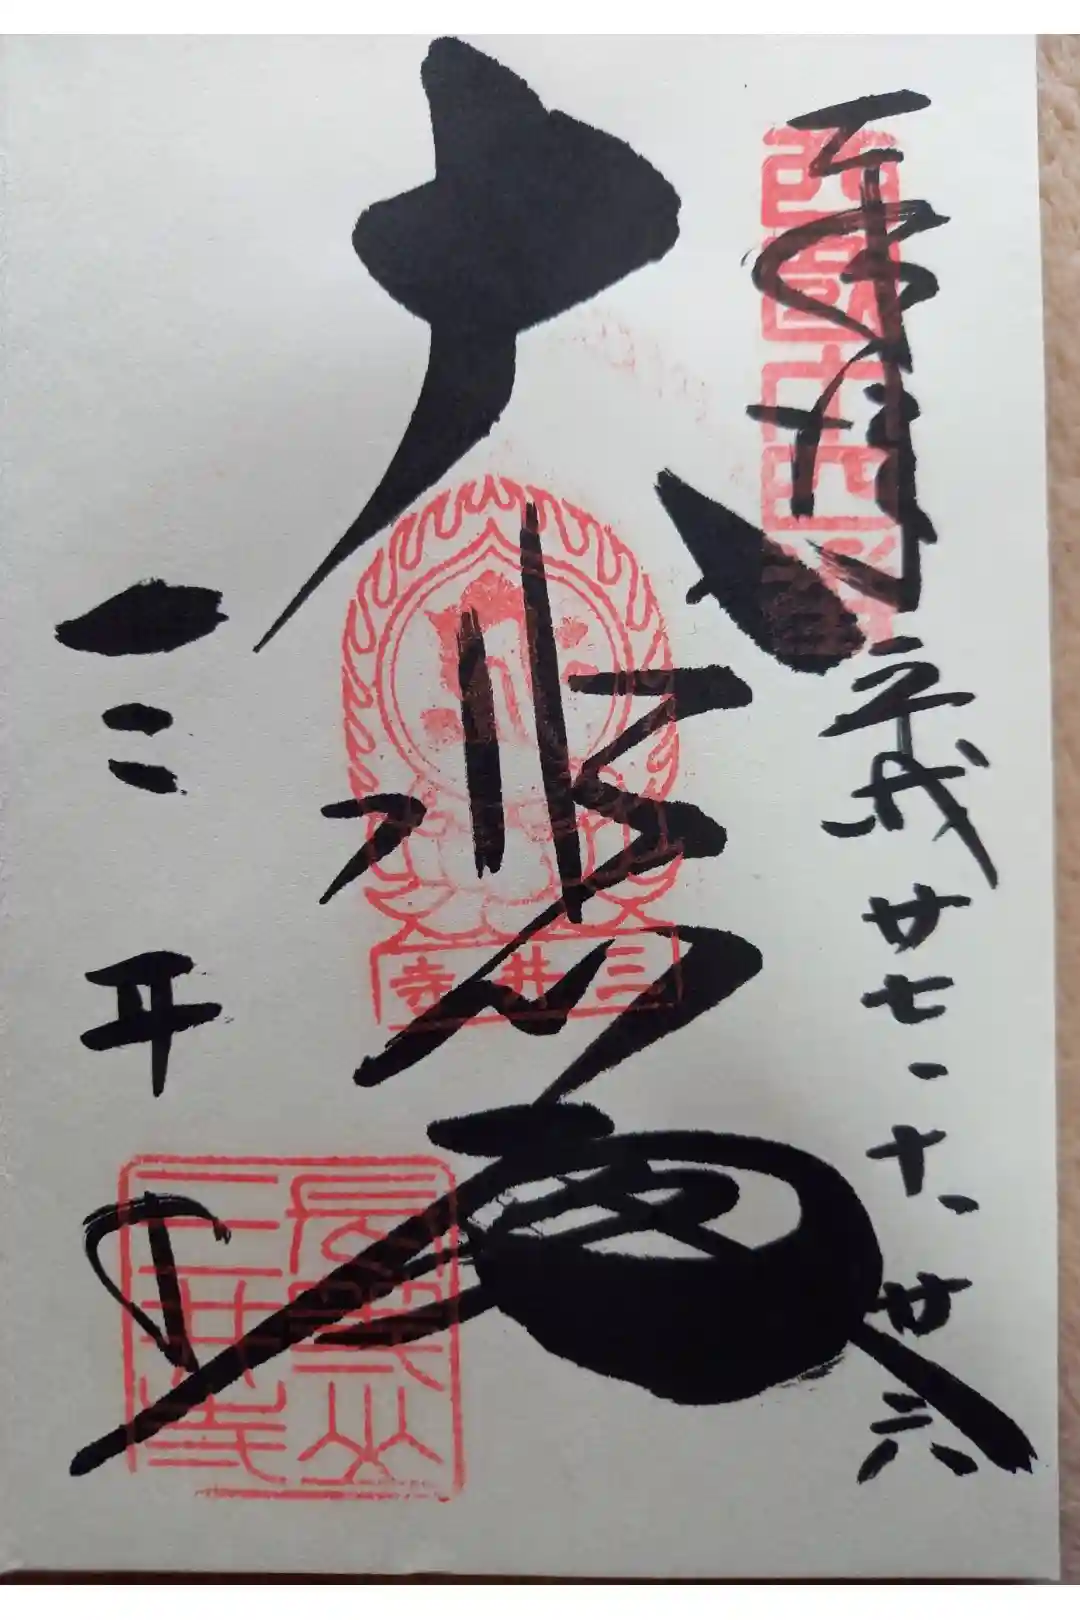 奉拝
西國十四番
平成廿七、十、廿六
大悲殿
三井寺
三井寺
長等山
三井寺